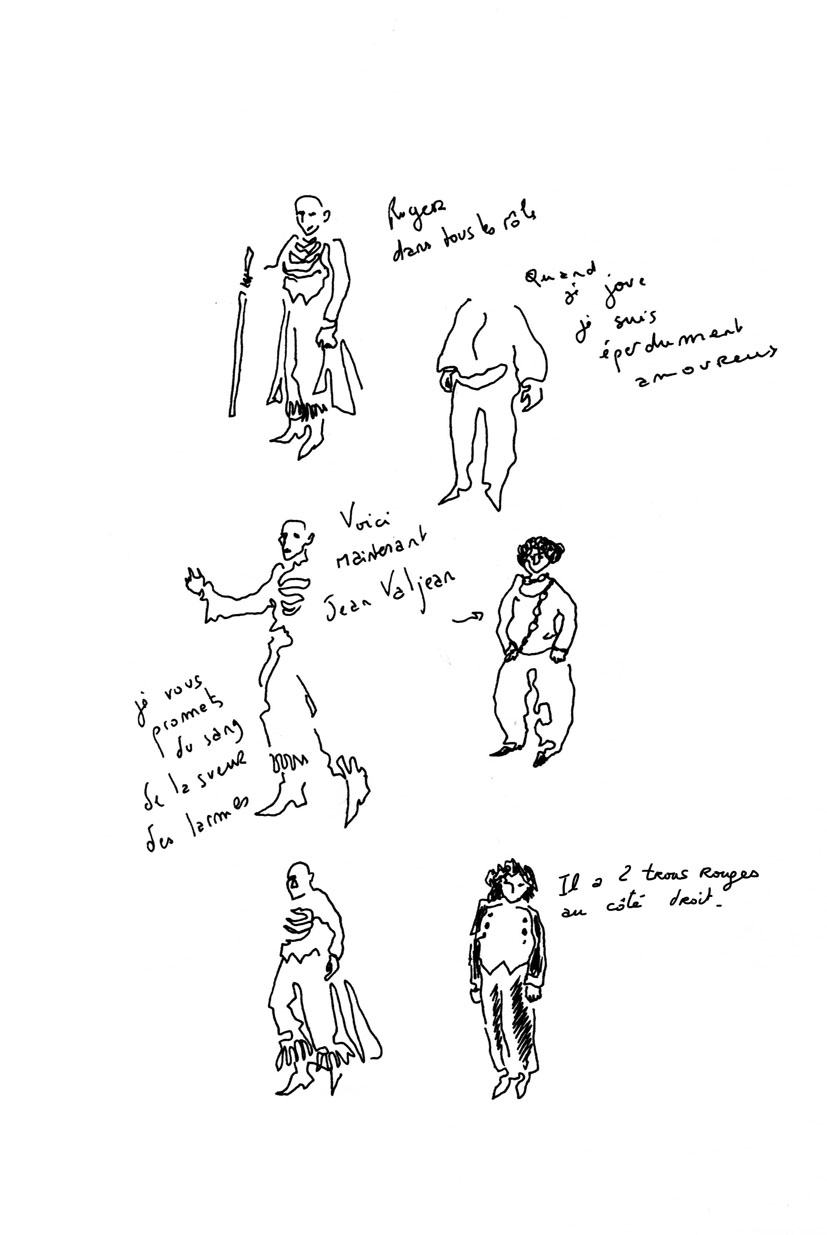 Roger
dans tous les rôles
Quand
je joue
je suis
éperdument
amoureux
Voici
maintenant
Jean Valjean
je vous
promets
du sang
de la sueur
des larmes
Il a 2 trous Rouges
au côté droit.